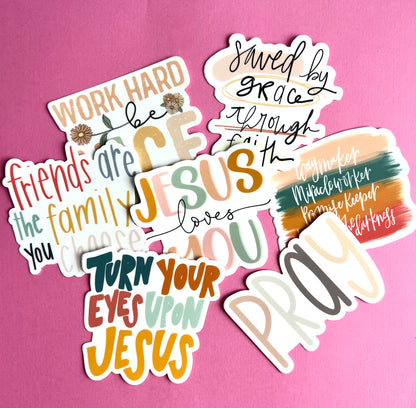 WORK HARD
be
CE
saved by
grace
through
faith
friends are
the family
you choose
JESUS
loves
YOU
Waymaker
Miracle worker
Promise Keeper
darkness
TURN YOUR
EYES UPON
JESUS
PRAY